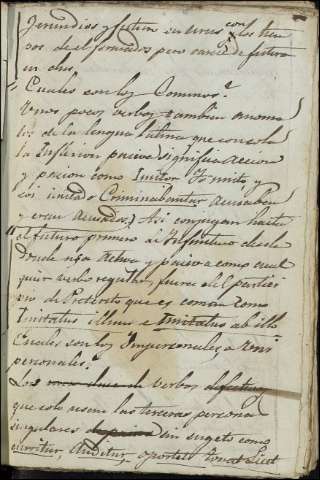 Jerundios y futuro en urus con los tiem
pos de el formados pero carece de futuro
en dus.
Cuales son los Comunes?
Unos pocos verbos tambien anoma
los de la lengua latina que con sola
la Inflexion pasiva significa accion
y pasion como Imitor Yo imito y
soi imitado Criminabantur acusaban
y eran acusados. Asi conjugan hasta
el futuro primero al Infinitivo desde
donde rige activa y pasiva como cual
quier verbo regular, fuera del partici
pio de Preterito que es comun como
Imitatus illum e Imitatus ab illo
Cuales son los Impersonales, o Uni
personales?
Los verbos defectivos
que solo usan las terceras personas
singulares sin sugeto como
scribitur, Auditur, oportet Tonat Licet